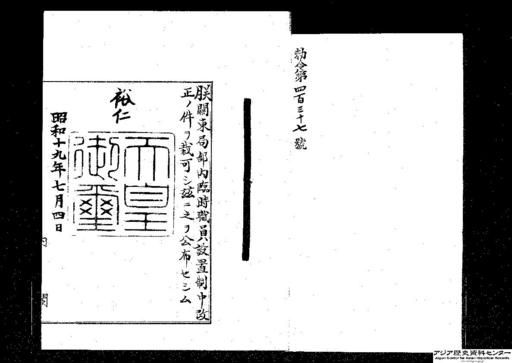 勅令第四百三十七號
朕關東局部內臨時職員設置制中改
正ノ件ヲ裁可シ茲ニ之ヲ公布セシム
裕仁
天皇御璽
昭和十九年七月四日
內閣
アジア歴史資料センター
Japan Center for Asian Historical Records